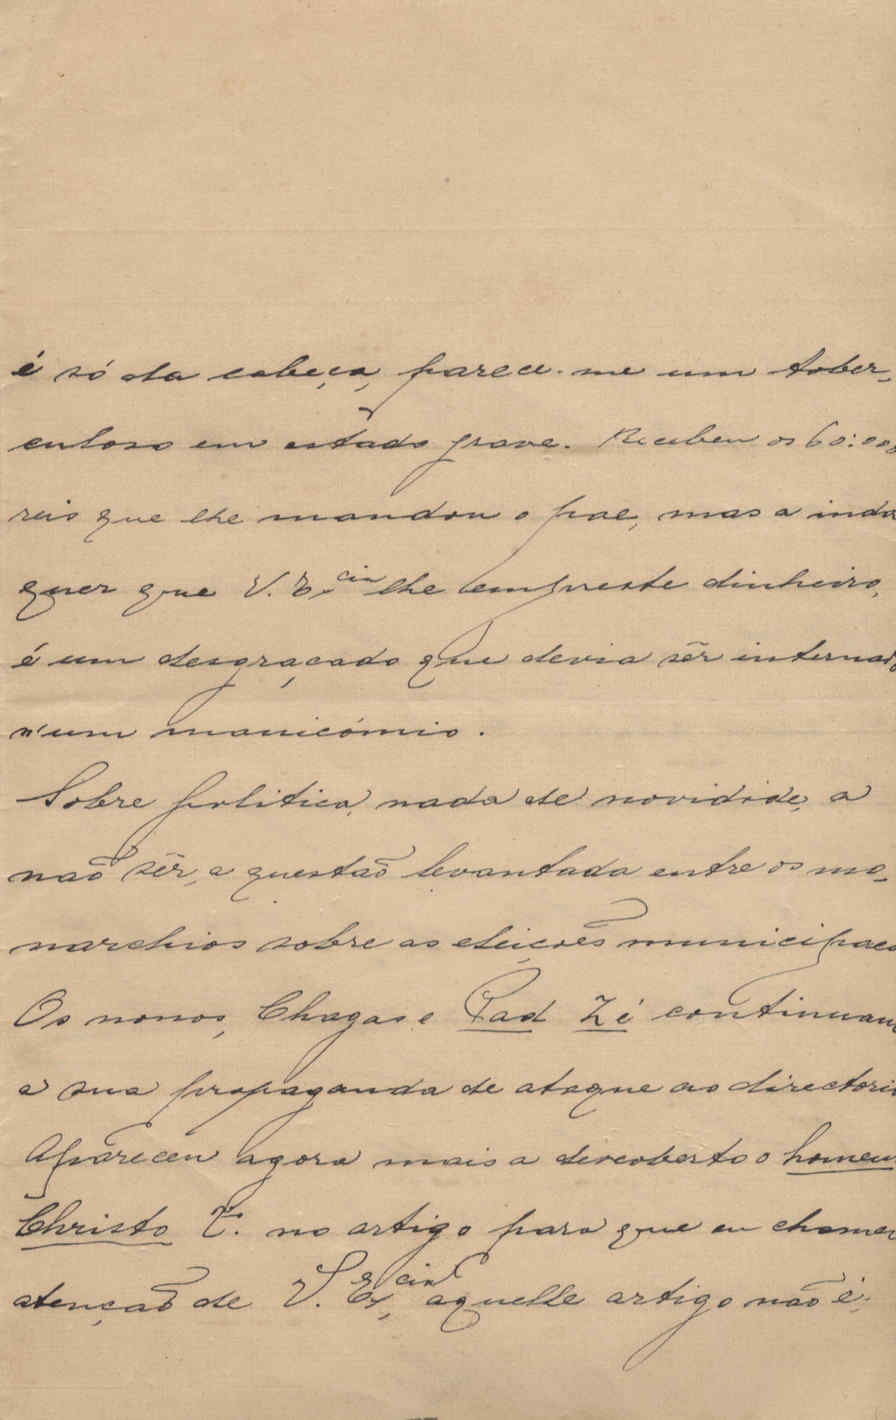 é só da cabeça, parece-me um tober-
culoso em estado grave. Recebeu os 60:000
reis que lhe mandou o pae, mas a inda
quer que V. E.cia lhe empreste dinheiro,
é um desgraçado que devia sêr internado
n'um manicómio.
Sobre politica, nada de novidide, a
não sêr, a questão levantada entre os mo-
narchios sobre as eleições municipaes
Os nonos, Chagas e Pad Zé continuam
a sua propaganda de ataque ao directorio
Apareceu agora mais a descoberto o homem
Christo F.º no artigo para que eu chamei
atenção de V. Ex.cia, aquelle artigo não é,